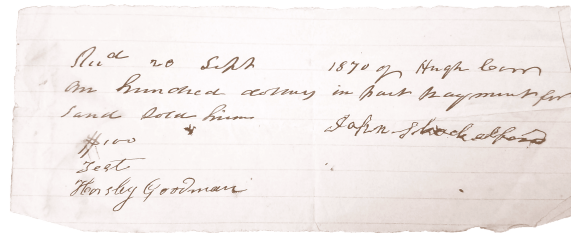 Recd 20 Sept 1870 of Hugh Carr
on hundred dollars in part payment for
Land Sold him
John Shackelford
$100
Test
Horsley Goodman